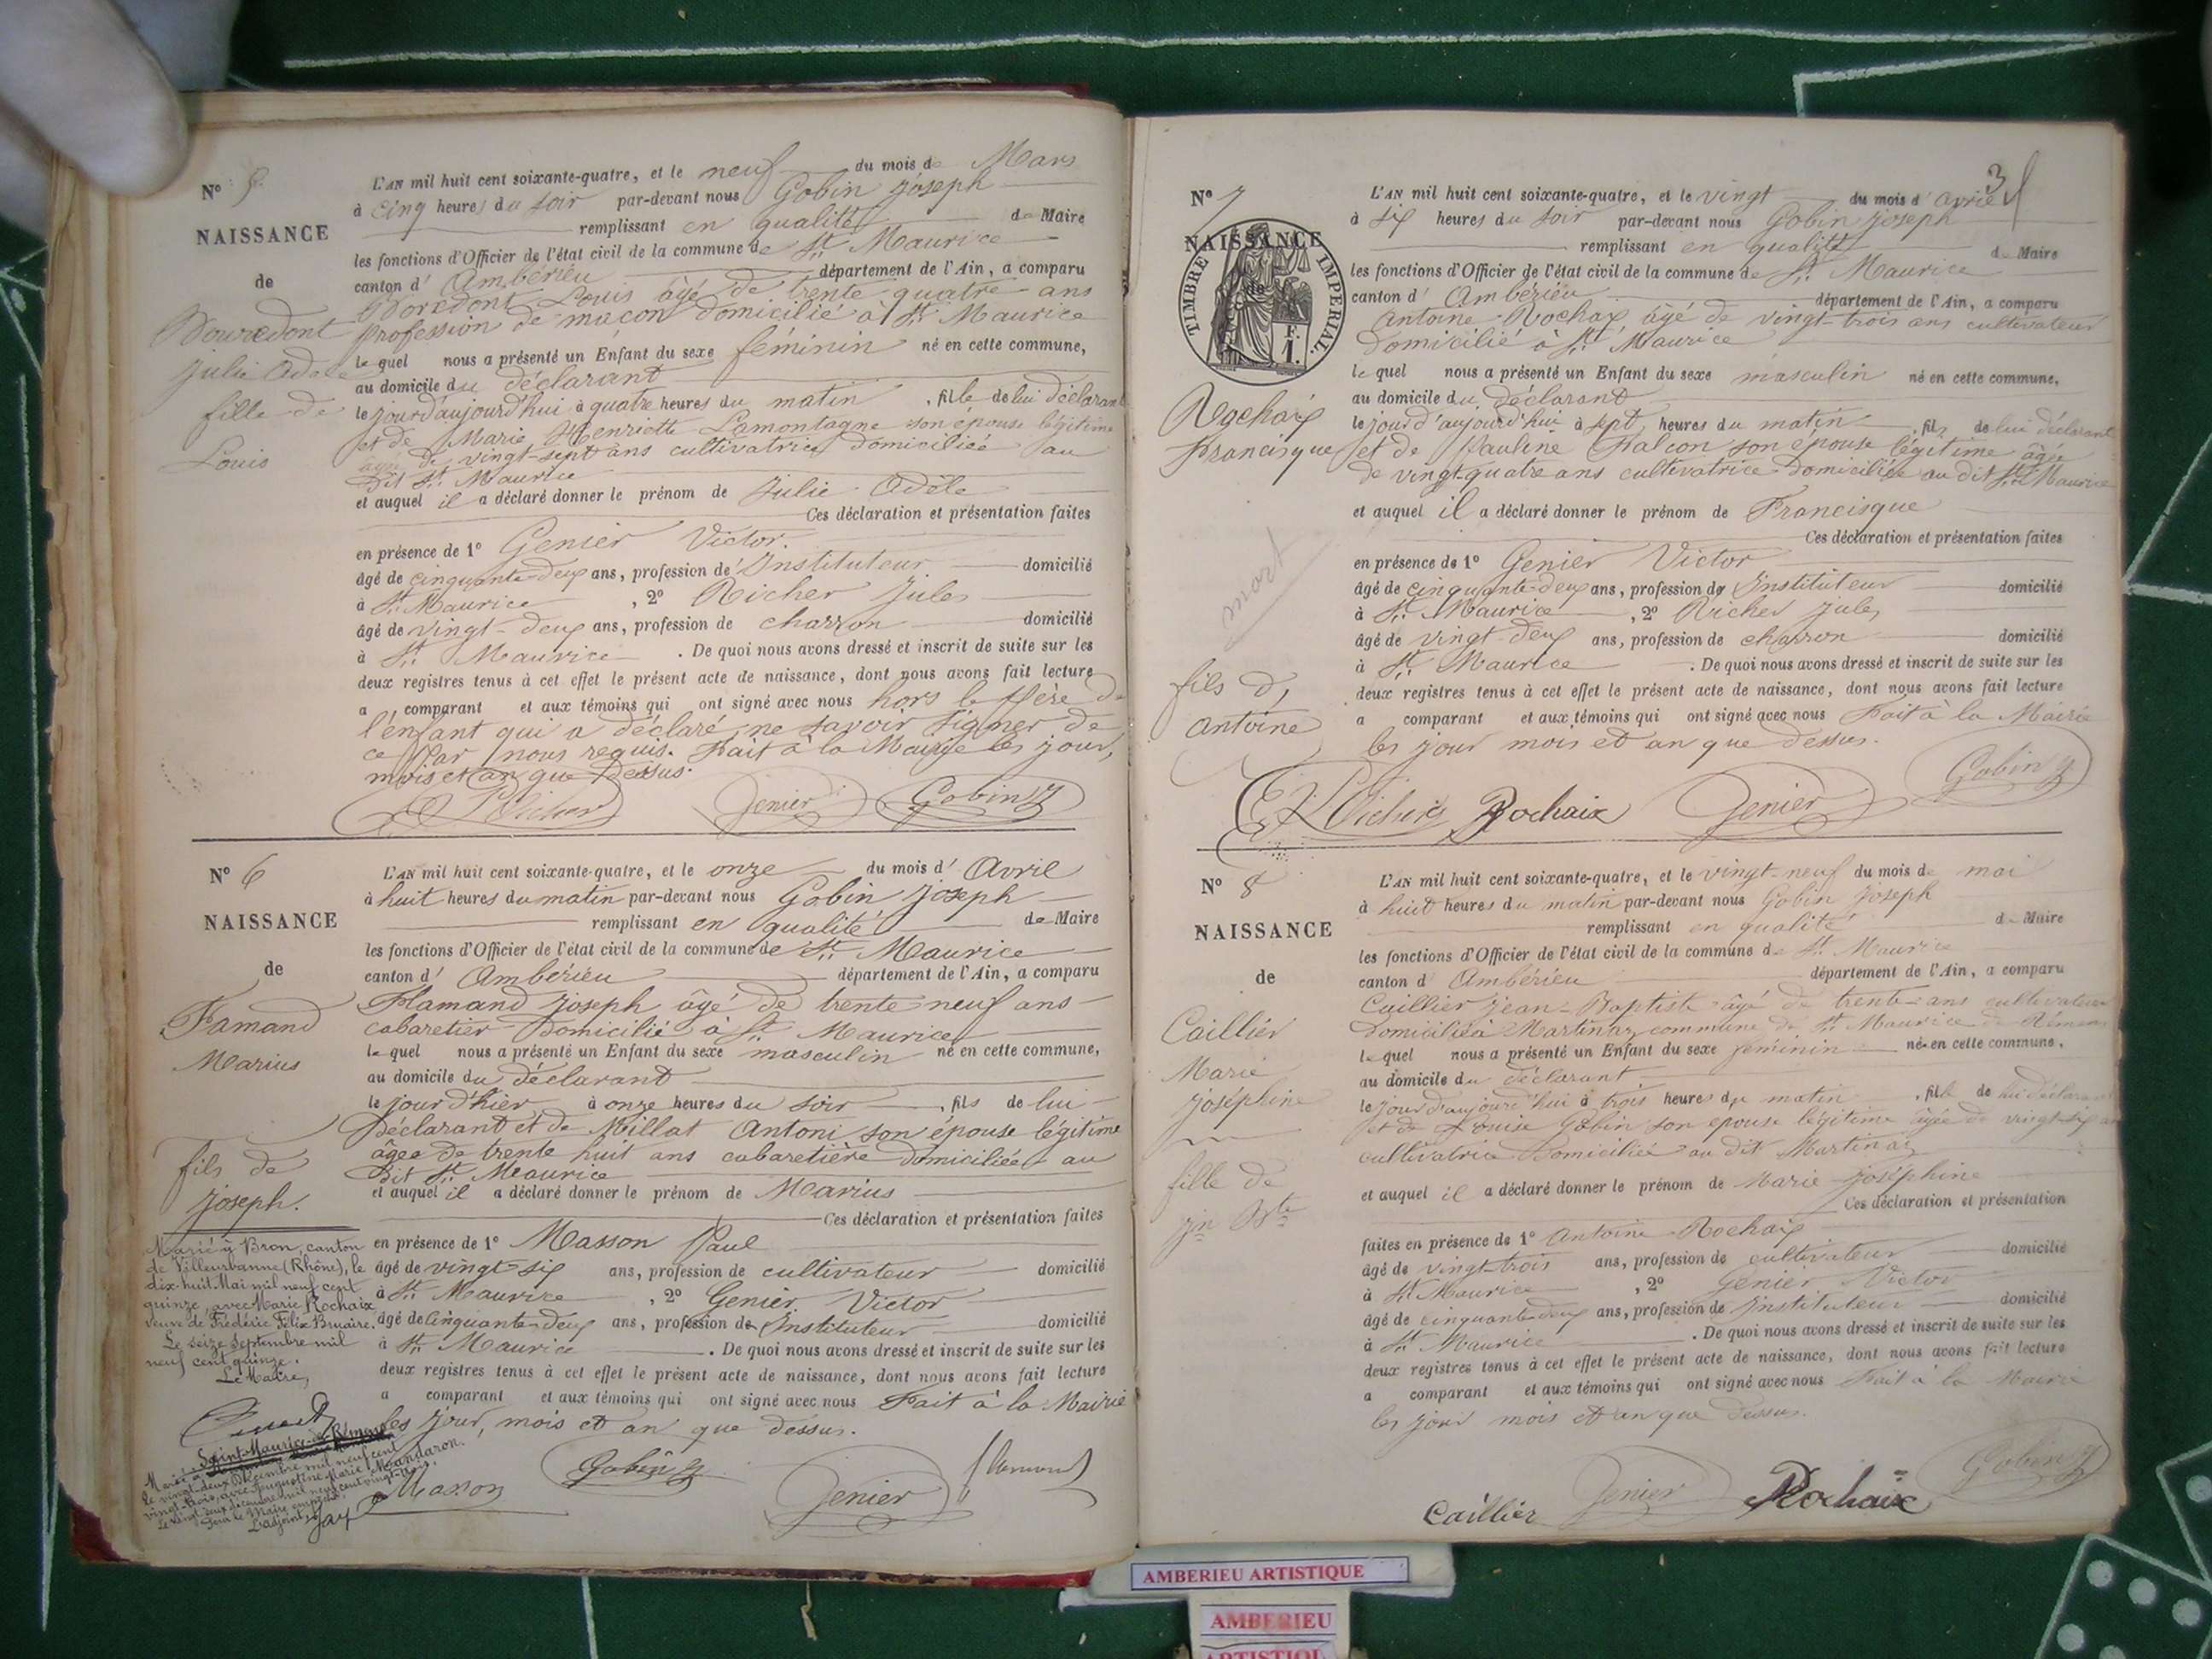 N° 5
NAISSANCE
de
Bouredont
Julie Adèle
fille de
Louis
L'AN mil huit cent soixante-quatre, et le neuf du mois de Mars
à cinq heures du soir par-devant nous Gobin Joseph
remplissant en qualité de Maire
les fonctions d'Officier de l'état civil de la commune de St. Maurice
canton d' Ambérieu département de l'Ain, a comparu
Boredont Louis âgé de trente quatre ans
profession de maçon domicilié à St. Maurice
lequel nous a présenté un Enfant du sexe féminin né en cette commune,
au domicile du déclarant
le jourd'aujourd'hui à quatre heures du matin, fille de lui déclarant
et de Marie Henriette Lamontagne son épouse légitime
âgée de vingt-sept ans cultivatrice domiciliée au
dit St. Maurice
et auquel il a déclaré donner le prénom de Julie Adèle
Ces déclaration et présentation faites
en présence de 1° Genier Victor
âgé de cinquante-deux ans, profession de Instituteur domicilié
à St. Maurice, 2° Richer Jules
âgé de vingt-deux ans, profession de charron domicilié
à St. Maurice. De quoi nous avons dressé et inscrit de suite sur les
deux registres tenus à cet effet le présent acte de naissance, dont nous avons fait lecture
a comparant et aux témoins qui ont signé avec nous hors le Père de
l'enfant qui a déclaré ne savoir signer de
ce par nous requis. Fait à la Mairie les jour,
mois et an que dessus.
Richer Genier Gobin J
N° 6
NAISSANCE
de
Famand
Marius
fils de
Joseph.
Marié à Bron, canton
de Villeurbanne (Rhône), le
dix-huit Mai mil neuf cent
quinze, avec Marie Rochaix
veuve de Frédéric Félix Bruaire.
Le seize Septembre mil
neuf cent quinze.
Le Maire,
Marié à Saint-Maurice-de-Rémens
le vingt-deux Décembre mil neuf cent
vingt-trois, avec Huguetine Marie Mandaron.
Le vingt-deux décembre mil neuf cent vingt-trois.
Pour le Maire empêché,
L'adjoint,
L'AN mil huit cent soixante-quatre, et le onze du mois d' Avril
à huit heures du matin par-devant nous Gobin Joseph
remplissant en qualité de Maire
les fonctions d'Officier de l'état civil de la commune de St. Maurice
canton d' Ambérieu département de l'Ain, a comparu
Flamand Joseph âgé de trente neuf ans
cabaretier domicilié à St. Maurice
lequel nous a présenté un Enfant du sexe masculin né en cette commune,
au domicile du déclarant
le jour d'hier à onze heures du soir, fils de lui
déclarant et de Millat Antoni son épouse légitime
âgée de trente huit ans cabaretière domiciliée au
dit St. Maurice
et auquel il a déclaré donner le prénom de Marius
Ces déclaration et présentation faites
en présence de 1° Masson Paul
âgé de vingt-six ans, profession de cultivateur domicilié
à St. Maurice, 2° Genier Victor
âgé de cinquante-deux ans, profession de Instituteur domicilié
à St. Maurice. De quoi nous avons dressé et inscrit de suite sur les
deux registres tenus à cet effet le présent acte de naissance, dont nous avons fait lecture
a comparant et aux témoins qui ont signé avec nous Fait à la Mairie
les jour, mois et an que dessus.
Masson Gobin J Genier Flamand
3
N° 7
NAISSANCE
de
TIMBRE IMPERIAL.
F.
1.
Rochaix
Francisque
mort
fils d'
Antoine
L'AN mil huit cent soixante-quatre, et le vingt du mois d' avril
à six heures du soir par-devant nous Gobin Joseph
remplissant en qualité de Maire
les fonctions d'Officier de l'état civil de la commune de St. Maurice
canton d' Ambérieu département de l'Ain, a comparu
Antoine Rochaix âgé de vingt-trois ans cultivateur
domicilié à St. Maurice
lequel nous a présenté un Enfant du sexe masculin né en cette commune,
au domicile du déclarant
le jour d'aujourd'hui à sept heures du matin, fils de lui déclarant
et de Pauline Falcon son épouse légitime âgée
de vingt-quatre ans cultivatrice domiciliée au dit St. Maurice
et auquel il a déclaré donner le prénom de Francisque
Ces déclaration et présentation faites
en présence de 1° Genier Victor
âgé de cinquante-deux ans, profession de Instituteur domicilié
à St. Maurice, 2° Richer Jules
âgé de vingt-deux ans, profession de charron domicilié
à St. Maurice. De quoi nous avons dressé et inscrit de suite sur les
deux registres tenus à cet effet le présent acte de naissance, dont nous avons fait lecture
a comparant et aux témoins qui ont signé avec nous Fait à la Mairie
les jour mois et an que dessus.
Richer Rochaix Genier Gobin J
N° 8
NAISSANCE
de
Caillier
Marie
Joséphine
fille de
Jn Bte
L'AN mil huit cent soixante-quatre, et le vingt-neuf du mois de mai
à huit heures du matin par-devant nous Gobin Joseph
remplissant en qualité de Maire
les fonctions d'Officier de l'état civil de la commune de St. Maurice
canton d' Ambérieu département de l'Ain, a comparu
Caillier Jean-Baptiste âgé de trente ans cultivateur
domicilié à Martinaz commune de St. Maurice de Rémens
lequel nous a présenté un Enfant du sexe féminin né en cette commune,
au domicile du déclarant
le jour d'aujourd'hui à trois heures du matin, fille de lui déclarant
et de Louise Gobin son épouse légitime âgée de vingt-six ans
cultivatrice domiciliée au dit Martinaz
et auquel il a déclaré donner le prénom de Marie Joséphine
Ces déclaration et présentation
faites en présence de 1° Antoine Rochaix
âgé de vingt-trois ans, profession de cultivateur domicilié
à St. Maurice, 2° Genier Victor
âgé de cinquante-deux ans, profession de Instituteur domicilié
à St. Maurice. De quoi nous avons dressé et inscrit de suite sur les
deux registres tenus à cet effet le présent acte de naissance, dont nous avons fait lecture
a comparant et aux témoins qui ont signé avec nous Fait à la Mairie
les jour mois et an que dessus.
Caillier Genier Rochaix Gobin J
AMBERIEU ARTISTIQUE
AMBERIEU
ARTISTIQUE